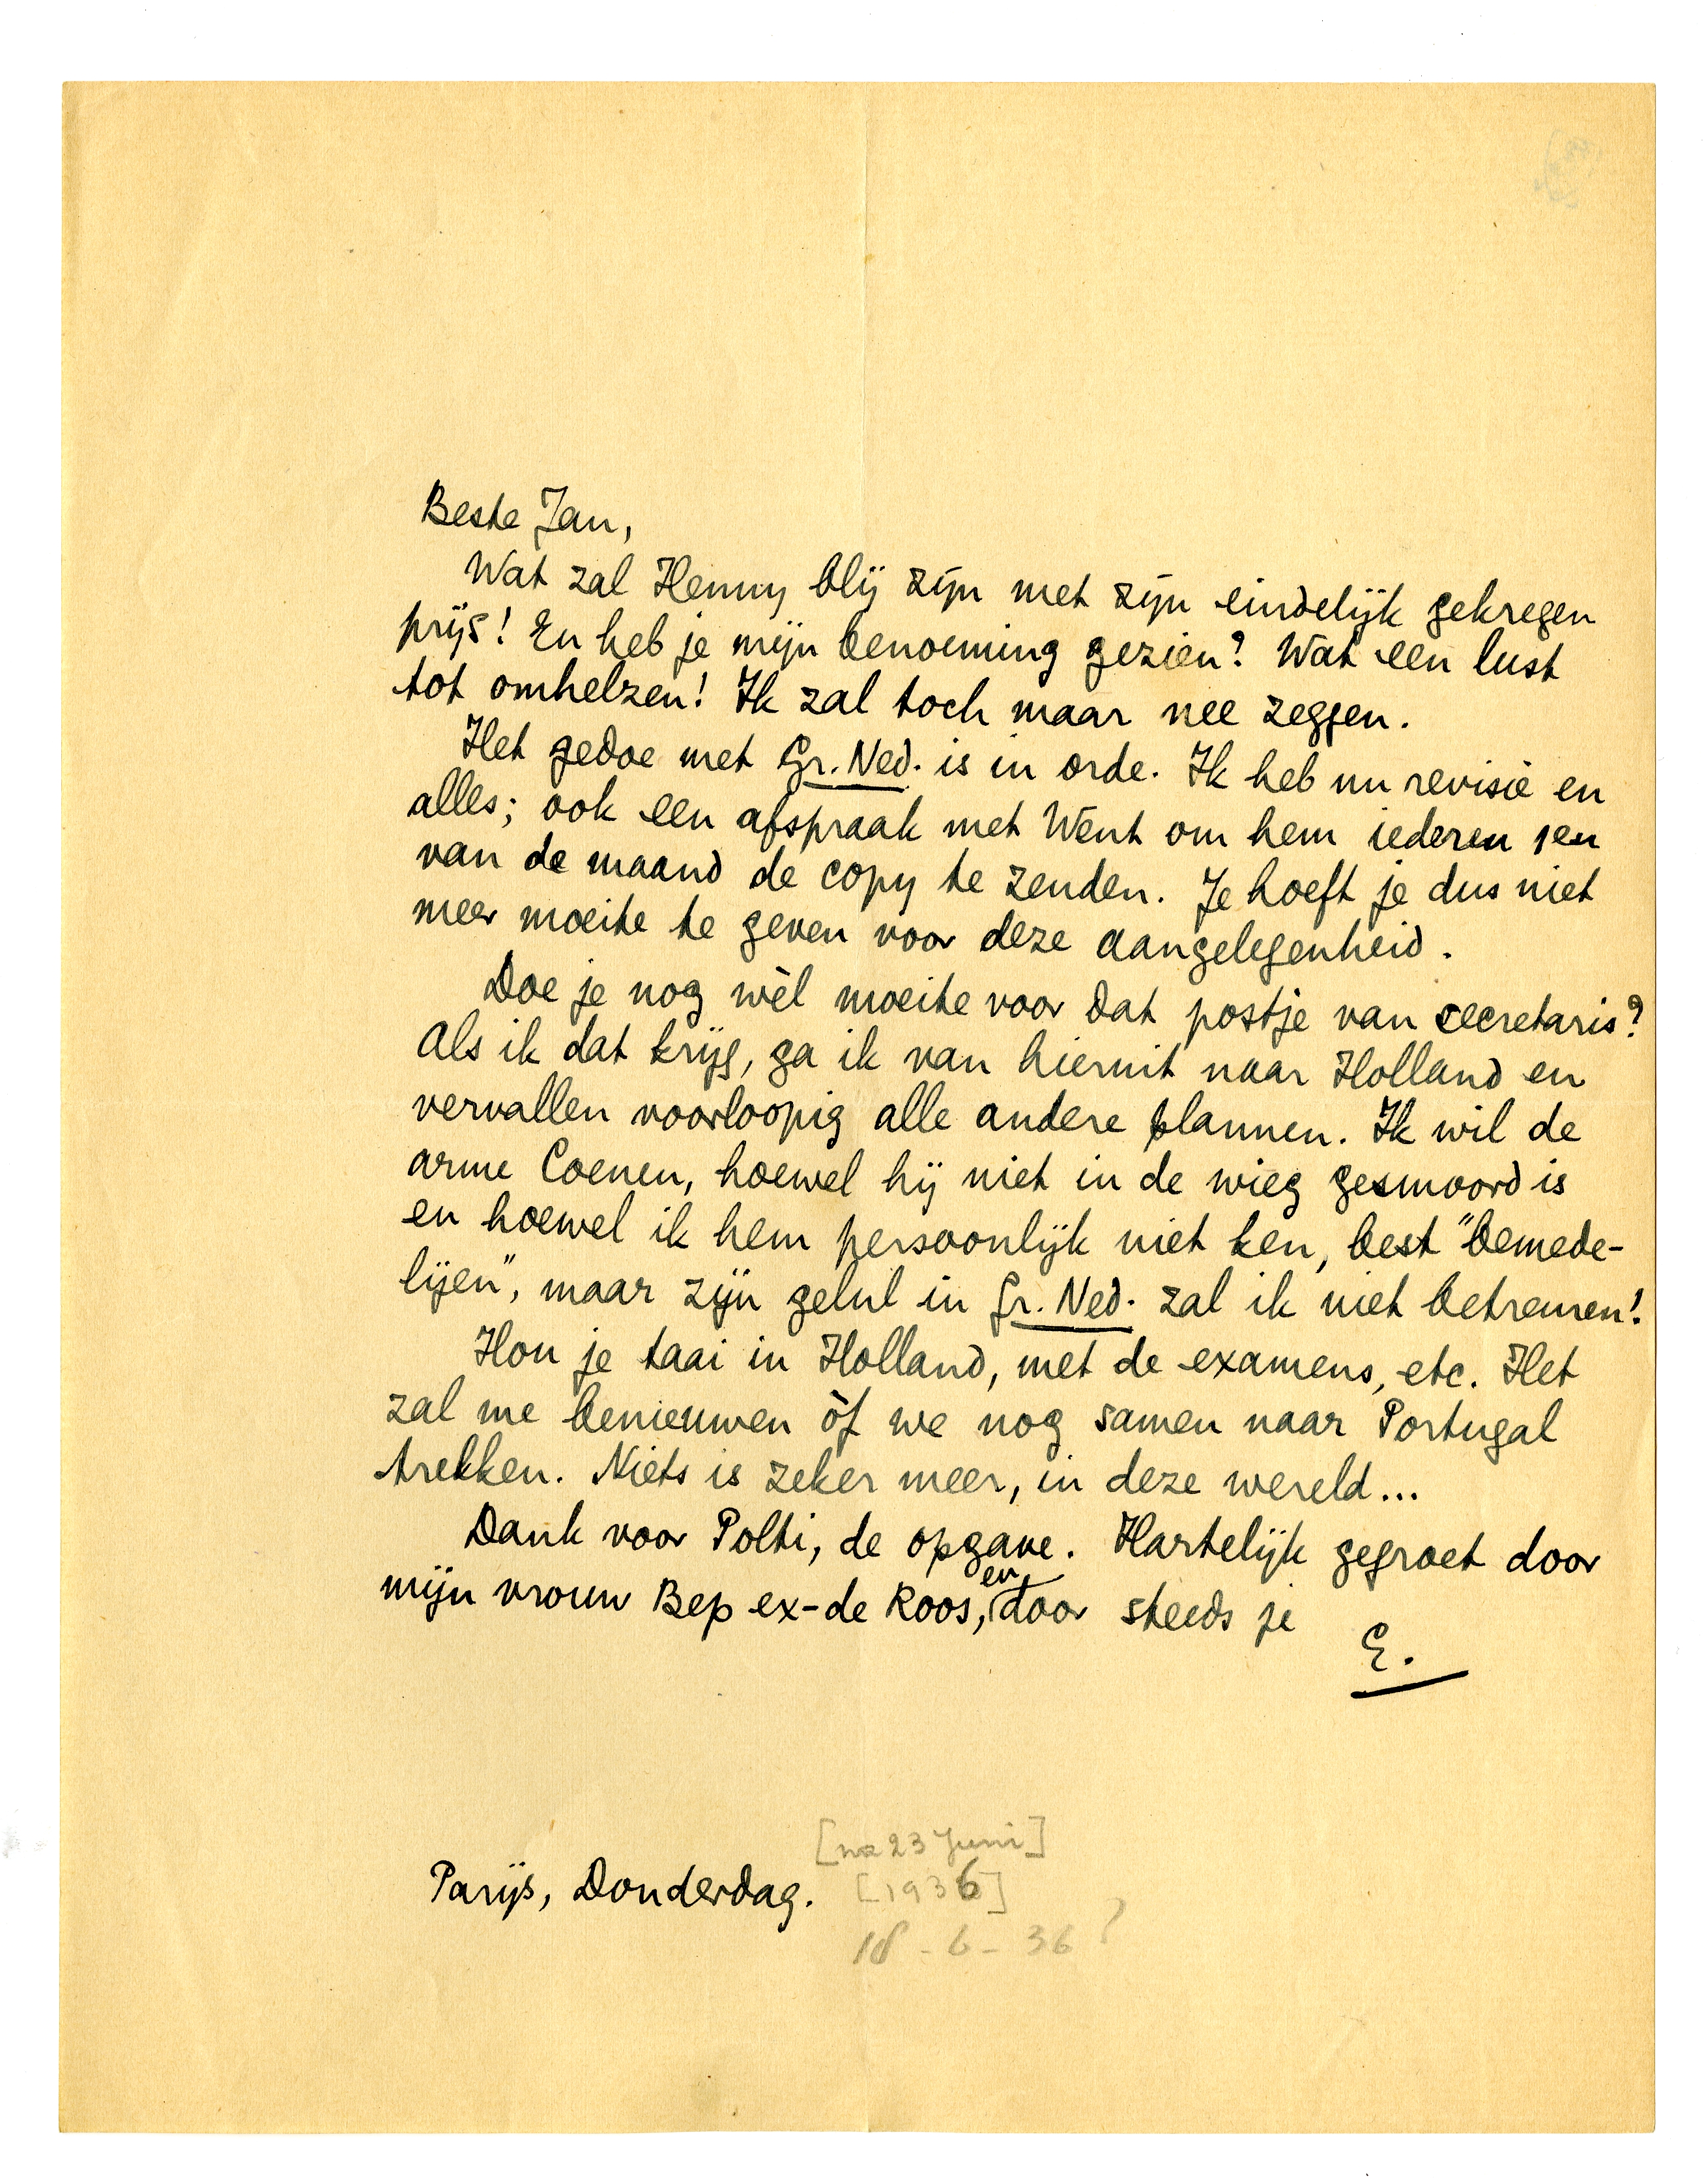 Beste Jan,
Wat zal Henny blij zijn met zijn eindelijk gekregen
prijs! En heb je mijn benoeming gezien? Wat een lust
tot omhelzen! Ik zal toch maar nee zeggen.
Het gedoe met Gr. Ned. is in orde. Ik heb nu revisie en
alles; ook een afspraak met Wènt om hem iederen 1en
van de maand de copy te zenden. Je hoeft je dus niet
meer moeite te geven voor deze aangelegenheid.
Doe je nog wèl moeite voor dat postje van secretaris?
Als ik dat krijg, ga ik van hieruit naar Holland en
vervallen voorloopig alle andere plannen. Ik wil de
arme Coenen, hoewel hij niet in de wieg gesmoord is
en hoewel ik hem persoonlijk niet ken, best "bemede-
lijen", maar zijn gelul in Gr. Ned. zal ik niet betreuren!
Hou je taai in Holland, met de examens, etc. Het
zal me benieuwen òf we nog samen naar Portugal
trekken. Niets is zeker meer, in deze wereld...
Dank voor Polti, de opgave. Hartelijk gegroet door
mijn vrouw Bep ex-de Roos, en door steeds je
E.
[na 23 Juni]
Parijs, Donderdag. [1936]
18-6-36?